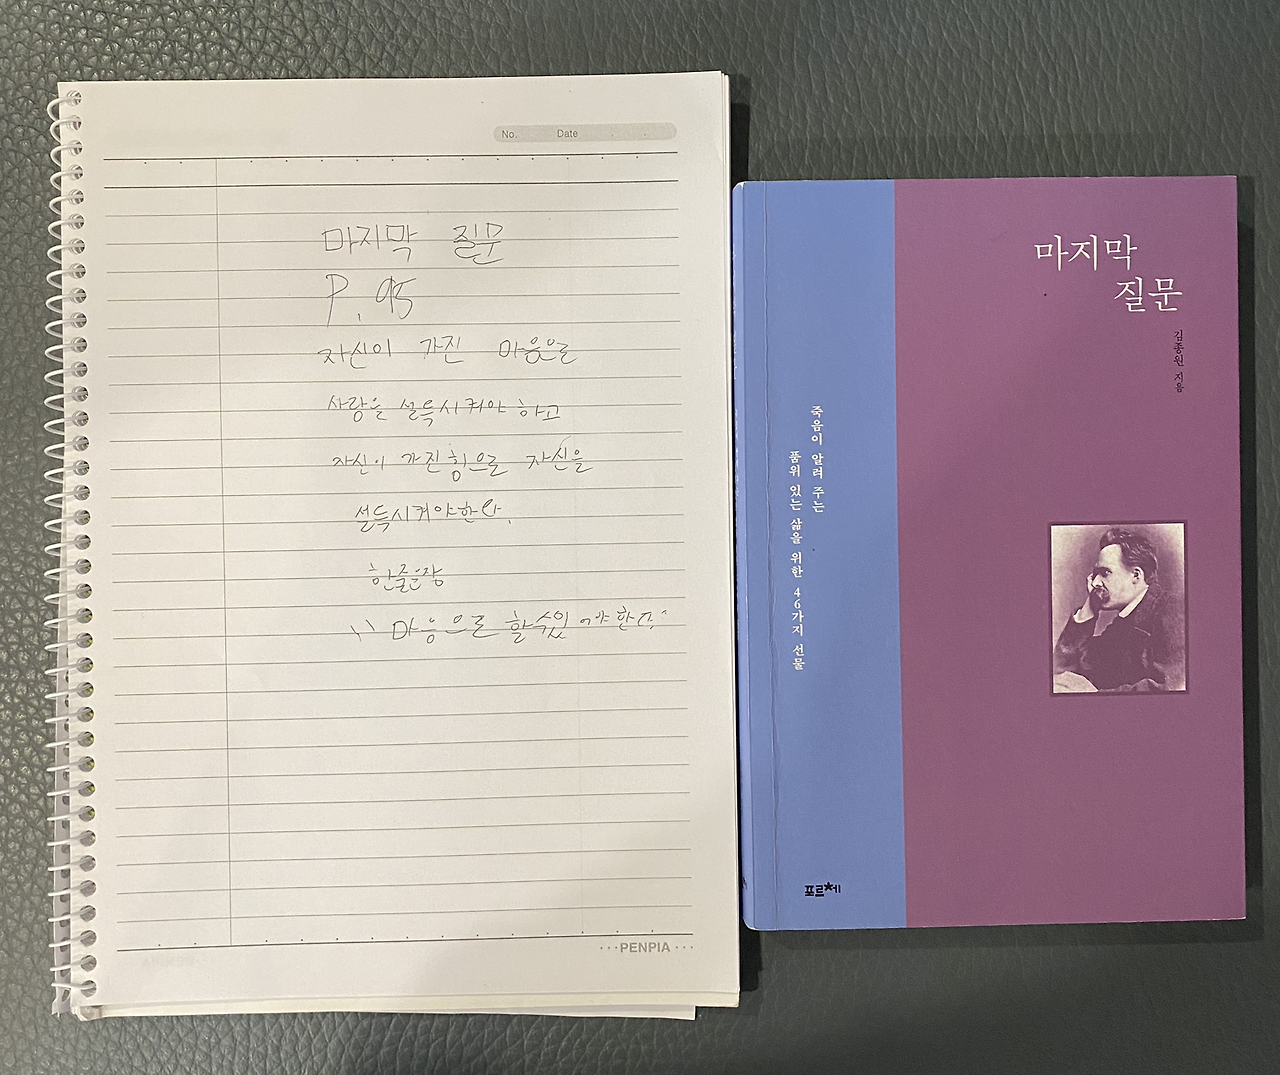 No. Date
마지막 질문
P. 95
자신이 가진 마음으로
사랑을 설득시켜야 하고
자신이 가진 힘으로 자신을
설득시켜야한다.
한줄문장
"마음으로 할수있어야 한다."
PENPIA
마지막
질문
김종원 지음
죽음이 알려 주는
품위 있는 삶을 위한 46가지 선물
포르체